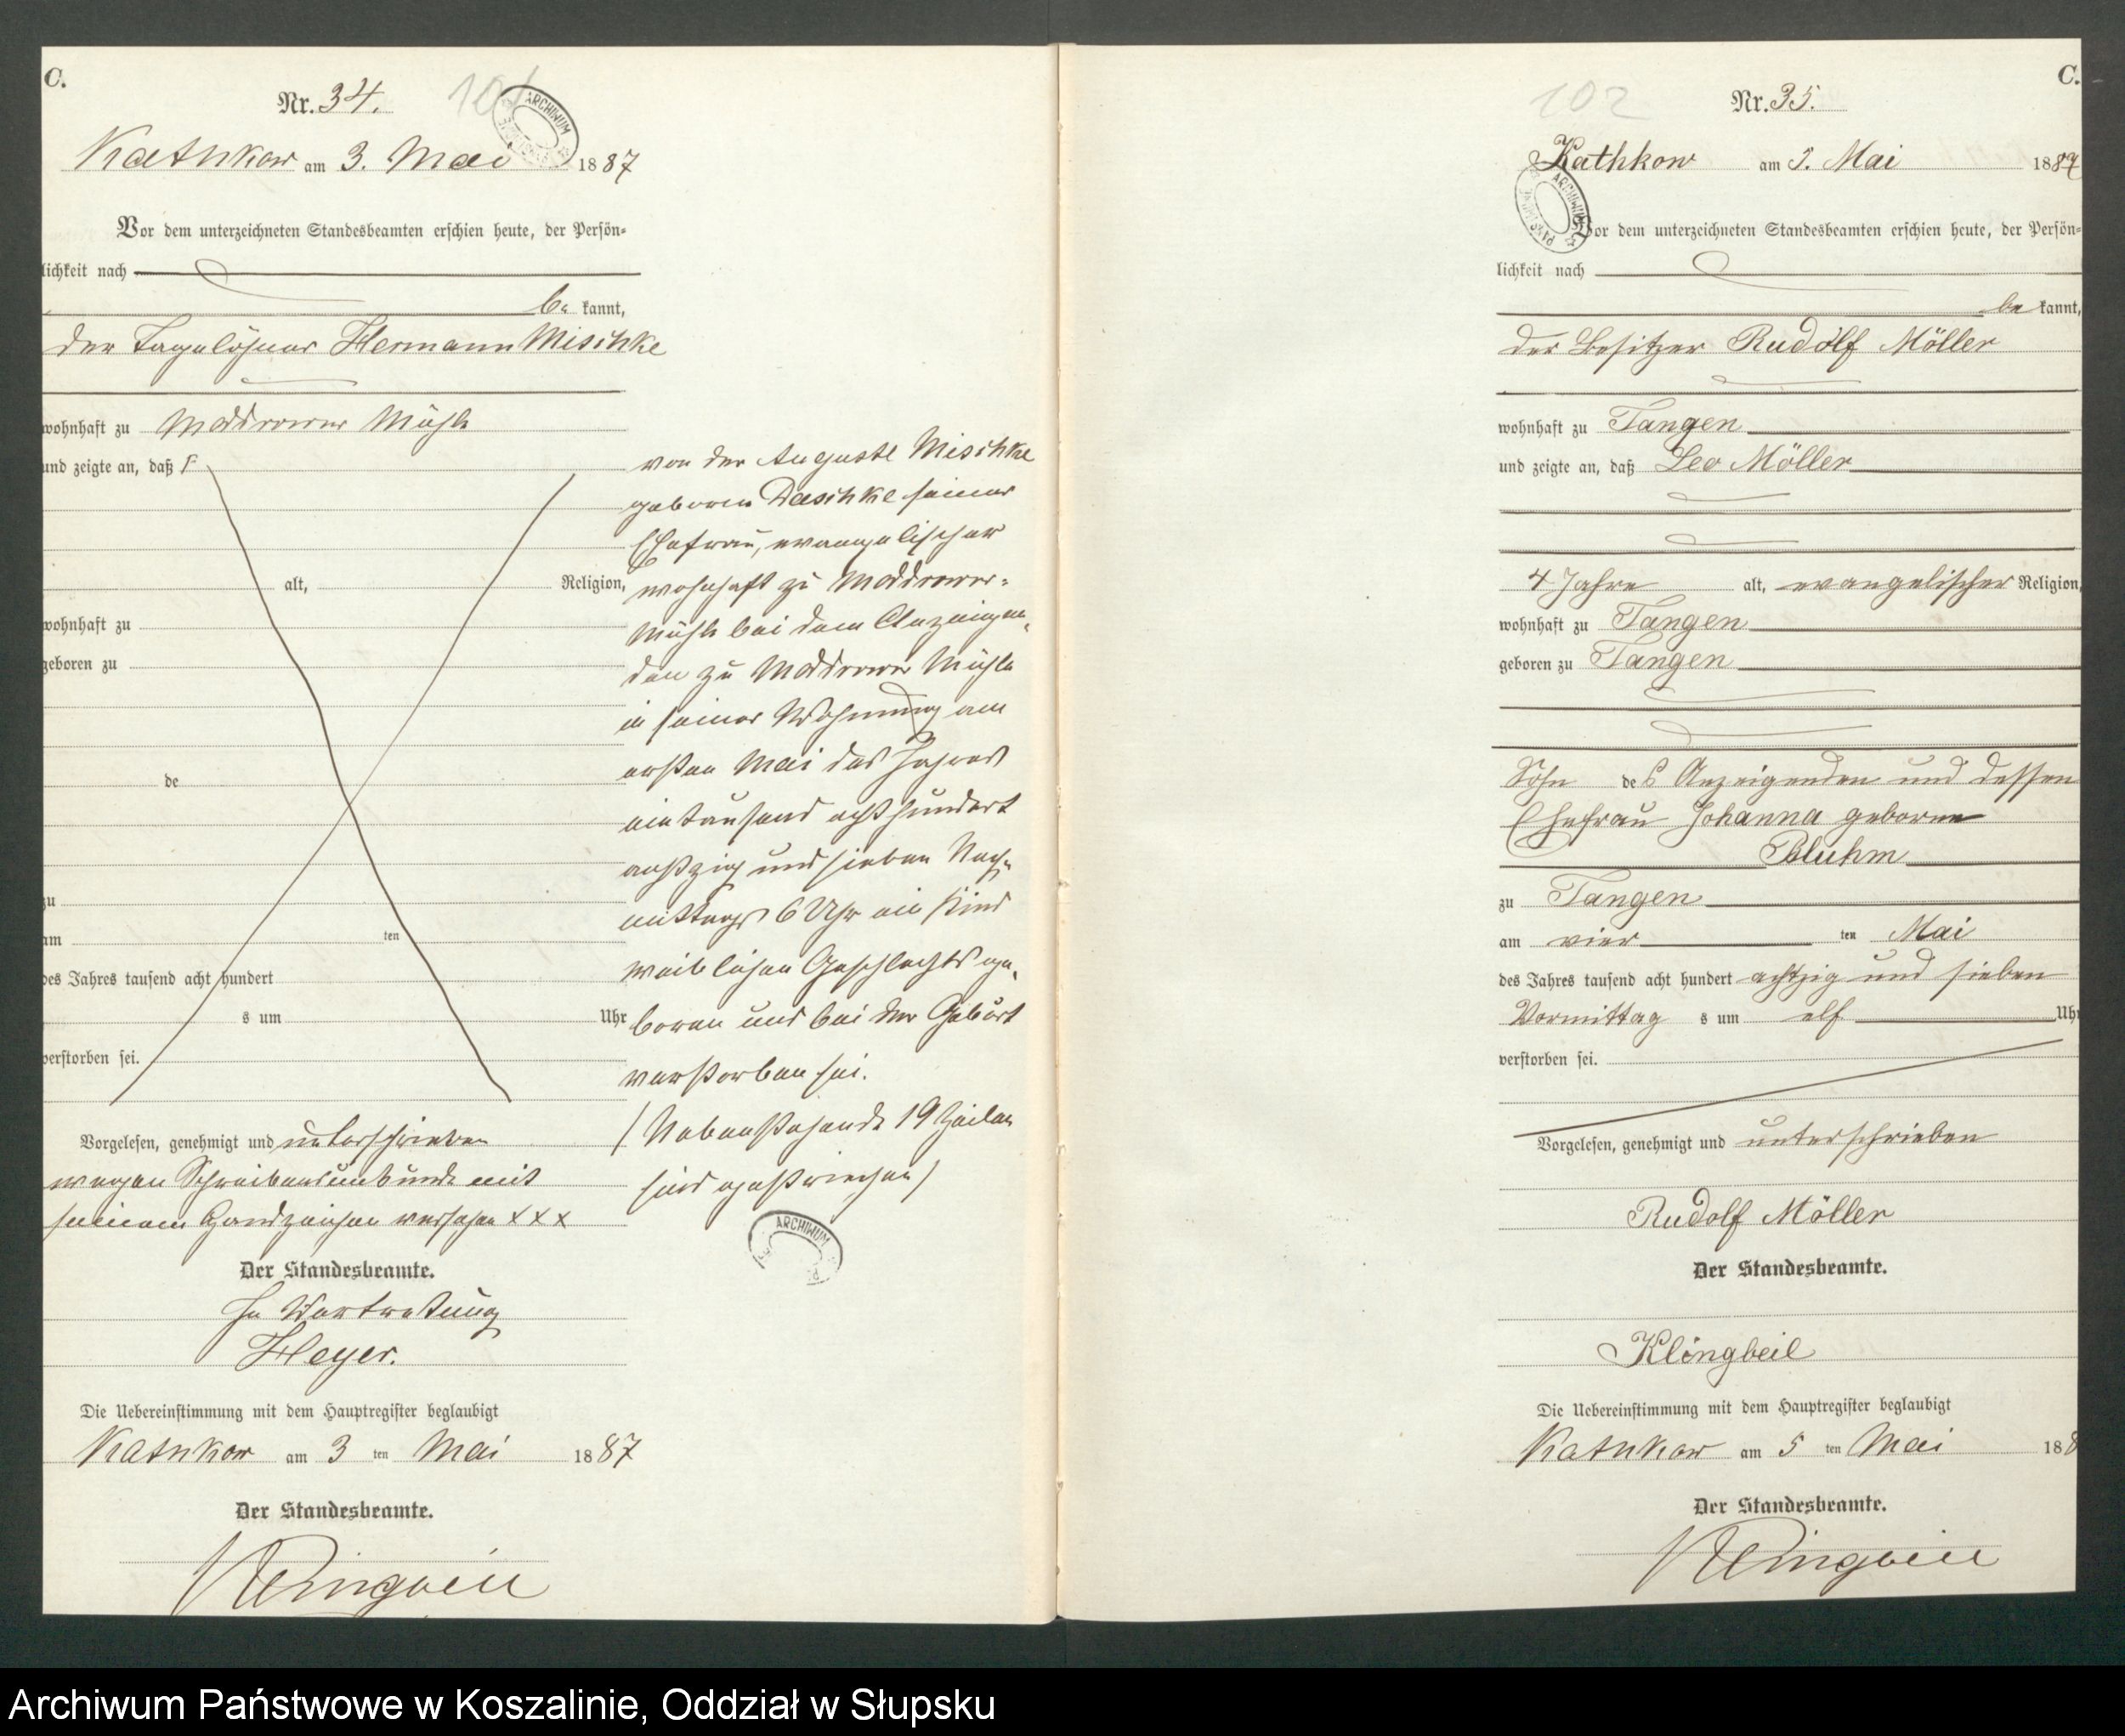 C.
Nr. 34.
101
Kathkow am 3. Mai 1887
Vor dem unterzeichneten Standesbeamten erschien heute, der Persön-
lichkeit nach
be kannt,
der Tagelöhner Hermann Mischke
wohnhaft zu Moddrower Mühle
und zeigte an, daß
alt, Religion,
wohnhaft zu
geboren zu
de
zu
am ten
des Jahres tausend acht hundert
s um Uhr
verstorben sei.
von der Auguste Mischke
geboren Daschke seiner
Ehefrau, evangelischer
wohnhaft zu Moddrower-
mühle bei dem Anzeigen-
den zu Moddrower Mühle
in seiner Wohnung am
ersten Mai des Jahres
eintausend achthundert
achtzig und sieben Nach-
mittags 6 Uhr ein Kind
weiblichen Geschlechts ge-
boren und bei der Geburt
verstorben sei.
/ Nebenstehende 19 Zeilen
sind gestrichen /
Vorgelesen, genehmigt und unterschrieben
wegen Schreibensunkunde mit
seinem Handzeichen versehen XXX
Der Standesbeamte.
In Vertretung
Heyer.
Die Uebereinstimmung mit dem Hauptregister beglaubigt
Kathkow am 3 ten Mai 1887
Der Standesbeamte.
Klingbeil
ARCHIWUM
C.
Nr. 35.
102
Kathkow am 5. Mai 1887
Vor dem unterzeichneten Standesbeamten erschien heute, der Persön-
lichkeit nach
be kannt,
der Besitzer Rudolf Möller
wohnhaft zu Tangen
und zeigte an, daß Leo Möller
4 Jahre alt, evangelischer Religion,
wohnhaft zu Tangen
geboren zu Tangen
Sohn des Anzeigenden und dessen
Ehefrau Johanna geborne
Bluhm
zu Tangen
am vier ten Mai
des Jahres tausend acht hundert achtzig und sieben
Vormittag s um elf Uhr
verstorben sei.
Vorgelesen, genehmigt und unterschrieben
Rudolf Möller
Der Standesbeamte.
Klingbeil
Die Uebereinstimmung mit dem Hauptregister beglaubigt
Kathkow am 5 ten Mai 188
Der Standesbeamte.
Klingbeil
Archiwum Państwowe w Koszalinie, Oddział w Słupsku